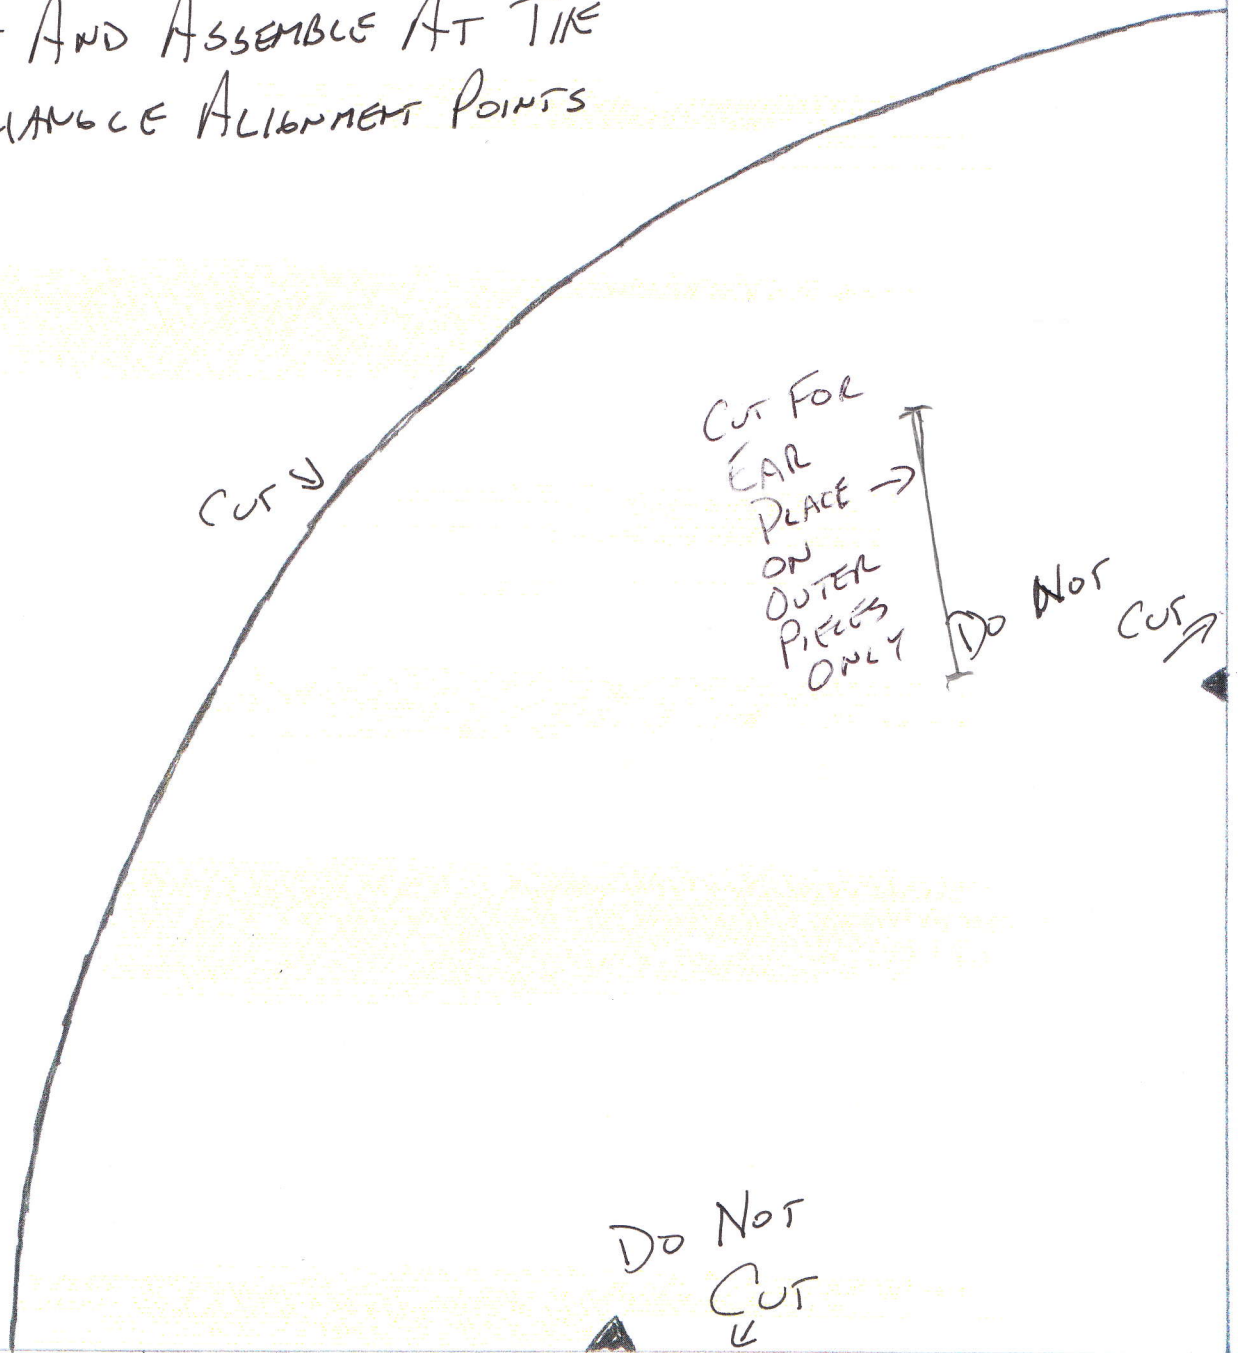 AND ASSEMBLE AT THE
ALIGNMENT POINTS
CUT FOR
EAR
PLACE →
ON
OUTER
PIECES
ONLY
CUT ↘
DO NOT
CUT ↗
DO NOT
CUT
↙